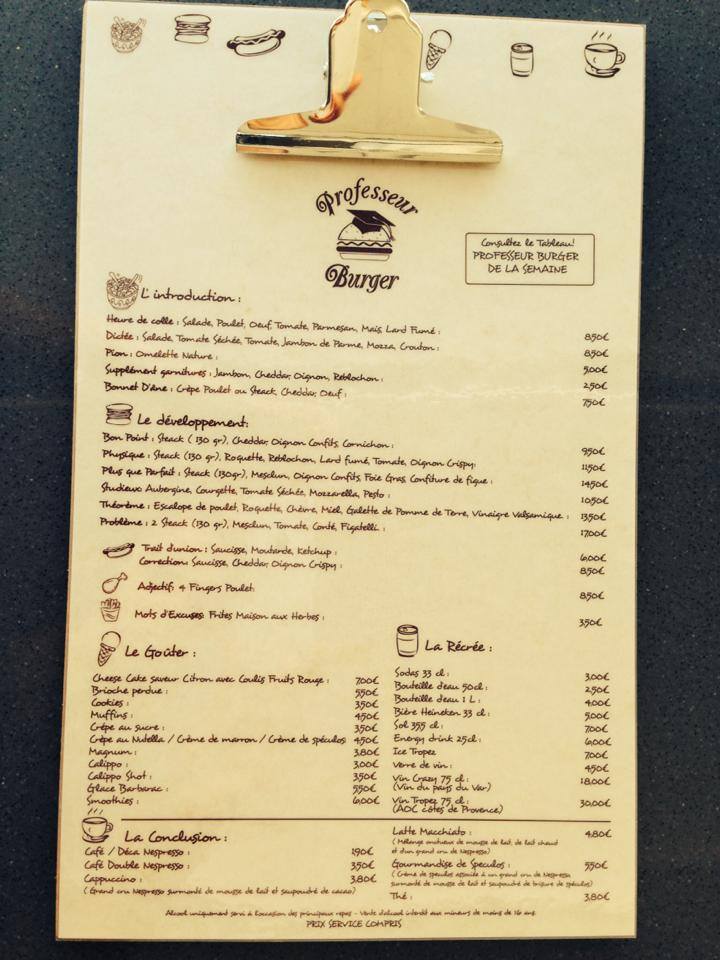 Professeur
Burger
Consultez le Tableau!
PROFESSEUR BURGER
DE LA SEMAINE
L'introduction :
Heure de colle : Salade, Poulet, Oeuf, Tomate, Parmesan, Maïs, Lard Fumé : 8,50€
Dictée : Salade, Tomate Séchée, Tomate, Jambon de Parme, Mozza, Crouton : 8,50€
Pion : Omelette Nature : 5,00€
Supplément garnitures : Jambon, Cheddar, Oignon, Reblochon : 2,50€
Bonnet D'âne : Crêpe Poulet ou Steack, Cheddar, Oeuf : 7,50€
Le développement:
Bon Point : Steack ( 130 gr), Cheddar, Oignon Confits, Cornichon : 9,50€
Physique : Steack (130 gr), Roquette, Reblochon, Lard fumé, Tomate, Oignon Crispy: 11,50€
Plus que Parfait : Steack (130gr), Mesclun, Oignon Confits, Foie Gras, Confiture de figue : 14,50€
Studieux: Aubergine, Courgette, Tomate Séchée, Mozzarella, Pesto : 10,50€
Théorème : Escalope de poulet, Roquette, Chèvre, Miel, Galette de Pomme de Terre, Vinaigre Valsamique : 13,50€
Problème : 2 Steack (130 gr), Mesclun, Tomate, Conté, Figatelli : 17,00€
Trait d'union : Saucisse, Moutarde, Ketchup : 6,00€
Correction: Saucisse, Cheddar, Oignon Crispy : 8,50€
Adjectif: 4 Fingers Poulet: 8,50€
Mots d'Excuses: Frites Maison aux Herbes : 3,50€
Le Goûter :
Cheese Cake saveur Citron avec Coulis Fruits Rouge : 7,00€
Brioche perdue : 5,50€
Cookies : 3,50€
Muffins : 4,50€
Crêpe au sucre : 3,50€
Crêpe au Nutella / Crème de marron / Crème de spéculos: 4,50€
Magnum : 3,80€
Calippo : 3,00€
Calippo Shot : 3,50€
Glace Barbarac : 5,50€
Smoothies : 6,00€
La Récrée :
Sodas 33 cl : 3,00€
Bouteille d'eau 50cl : 2,50€
Bouteille d'eau 1 L : 4,00€
Bière Heineken 33 cl : 5,00€
Sol 355 cl : 7,00€
Energy drink 25cl : 6,00€
Ice Tropez 7,00€
Verre de vin : 4,50€
Vin Crazy 75 cl : 18,00€
(Vin du pays du Var)
Vin Tropez 75 cl : 30,00€
(AOC côtes de Provence)
La Conclusion :
Café / Déca Nespresso : 1,90€
Café Double Nespresso : 3,50€
Cappuccino : 3,80€
( Grand cru Nespresso surmonté de mousse de lait et saupoudré de cacao)
Latte Macchiato : 4,80€
( Mélange onctueux de mousse de lait, de lait chaud
et d'un grand cru de Nespresso)
Gourmandise de Speculos : 5,50€
( Crème de speculos associée à un grand cru de Nespresso
surmonté de mousse de lait et saupoudré de brisure de spéculos)
Thé : 3,80€
Alcool uniquement servi à l'occasion des principaux repas - Vente d'alcool interdit aux mineurs de moins de 16 ans
PRIX SERVICE COMPRIS